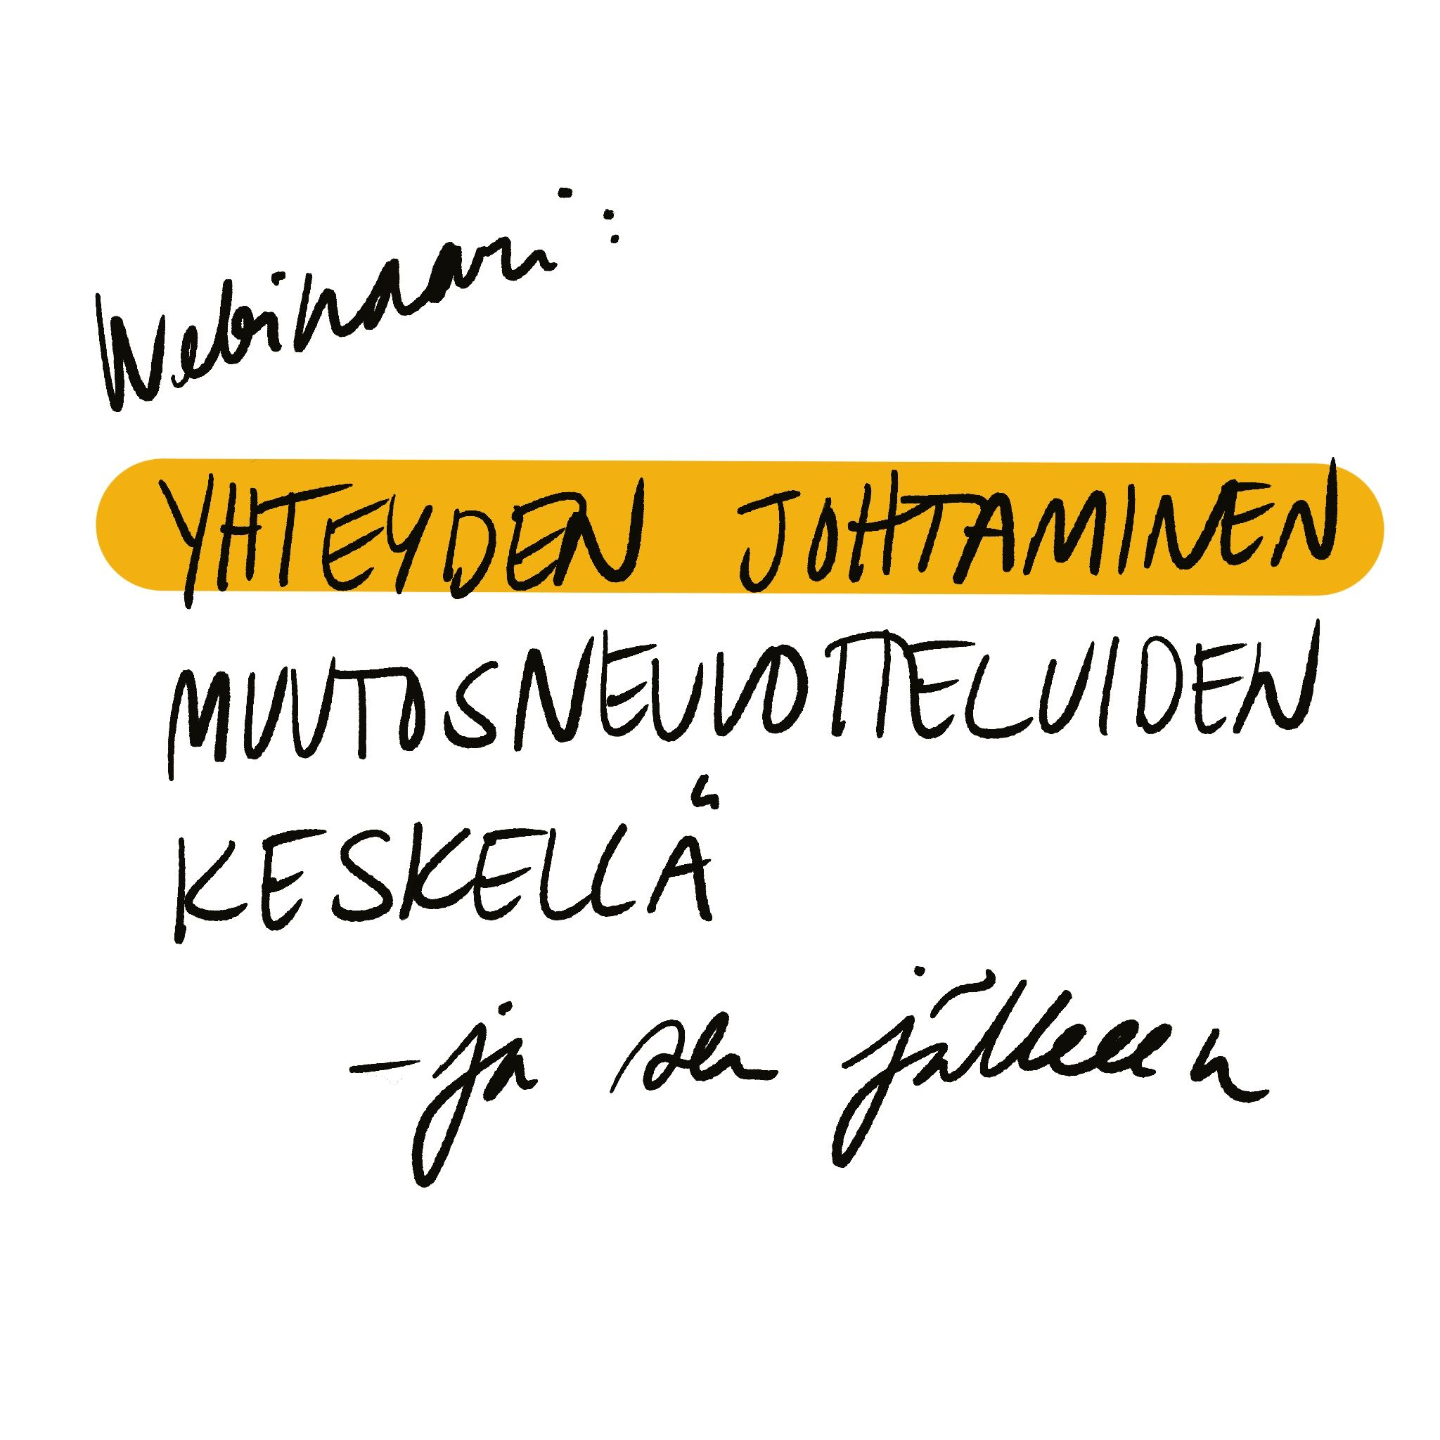 Webinaari:
YHTEYDEN JOHTAMINEN
MUUTOSNEUVOTTELUIDEN
KESKELLÄ
– ja sen jälkeen